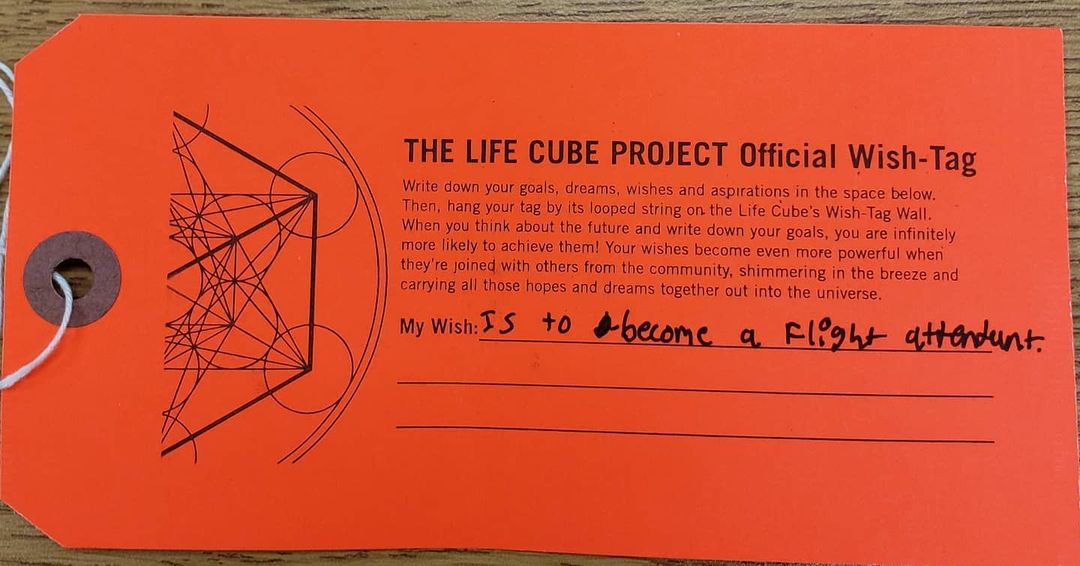 THE LIFE CUBE PROJECT Official Wish-Tag
Write down your goals, dreams, wishes and aspirations in the space below.
Then, hang your tag by its looped string on the Life Cube's Wish-Tag Wall.
When you think about the future and write down your goals, you are infinitely
more likely to achieve them! Your wishes become even more powerful when
they're joined with others from the community, shimmering in the breeze and
carrying all those hopes and dreams together out into the universe.
My Wish: Is to become a Flight attendant.